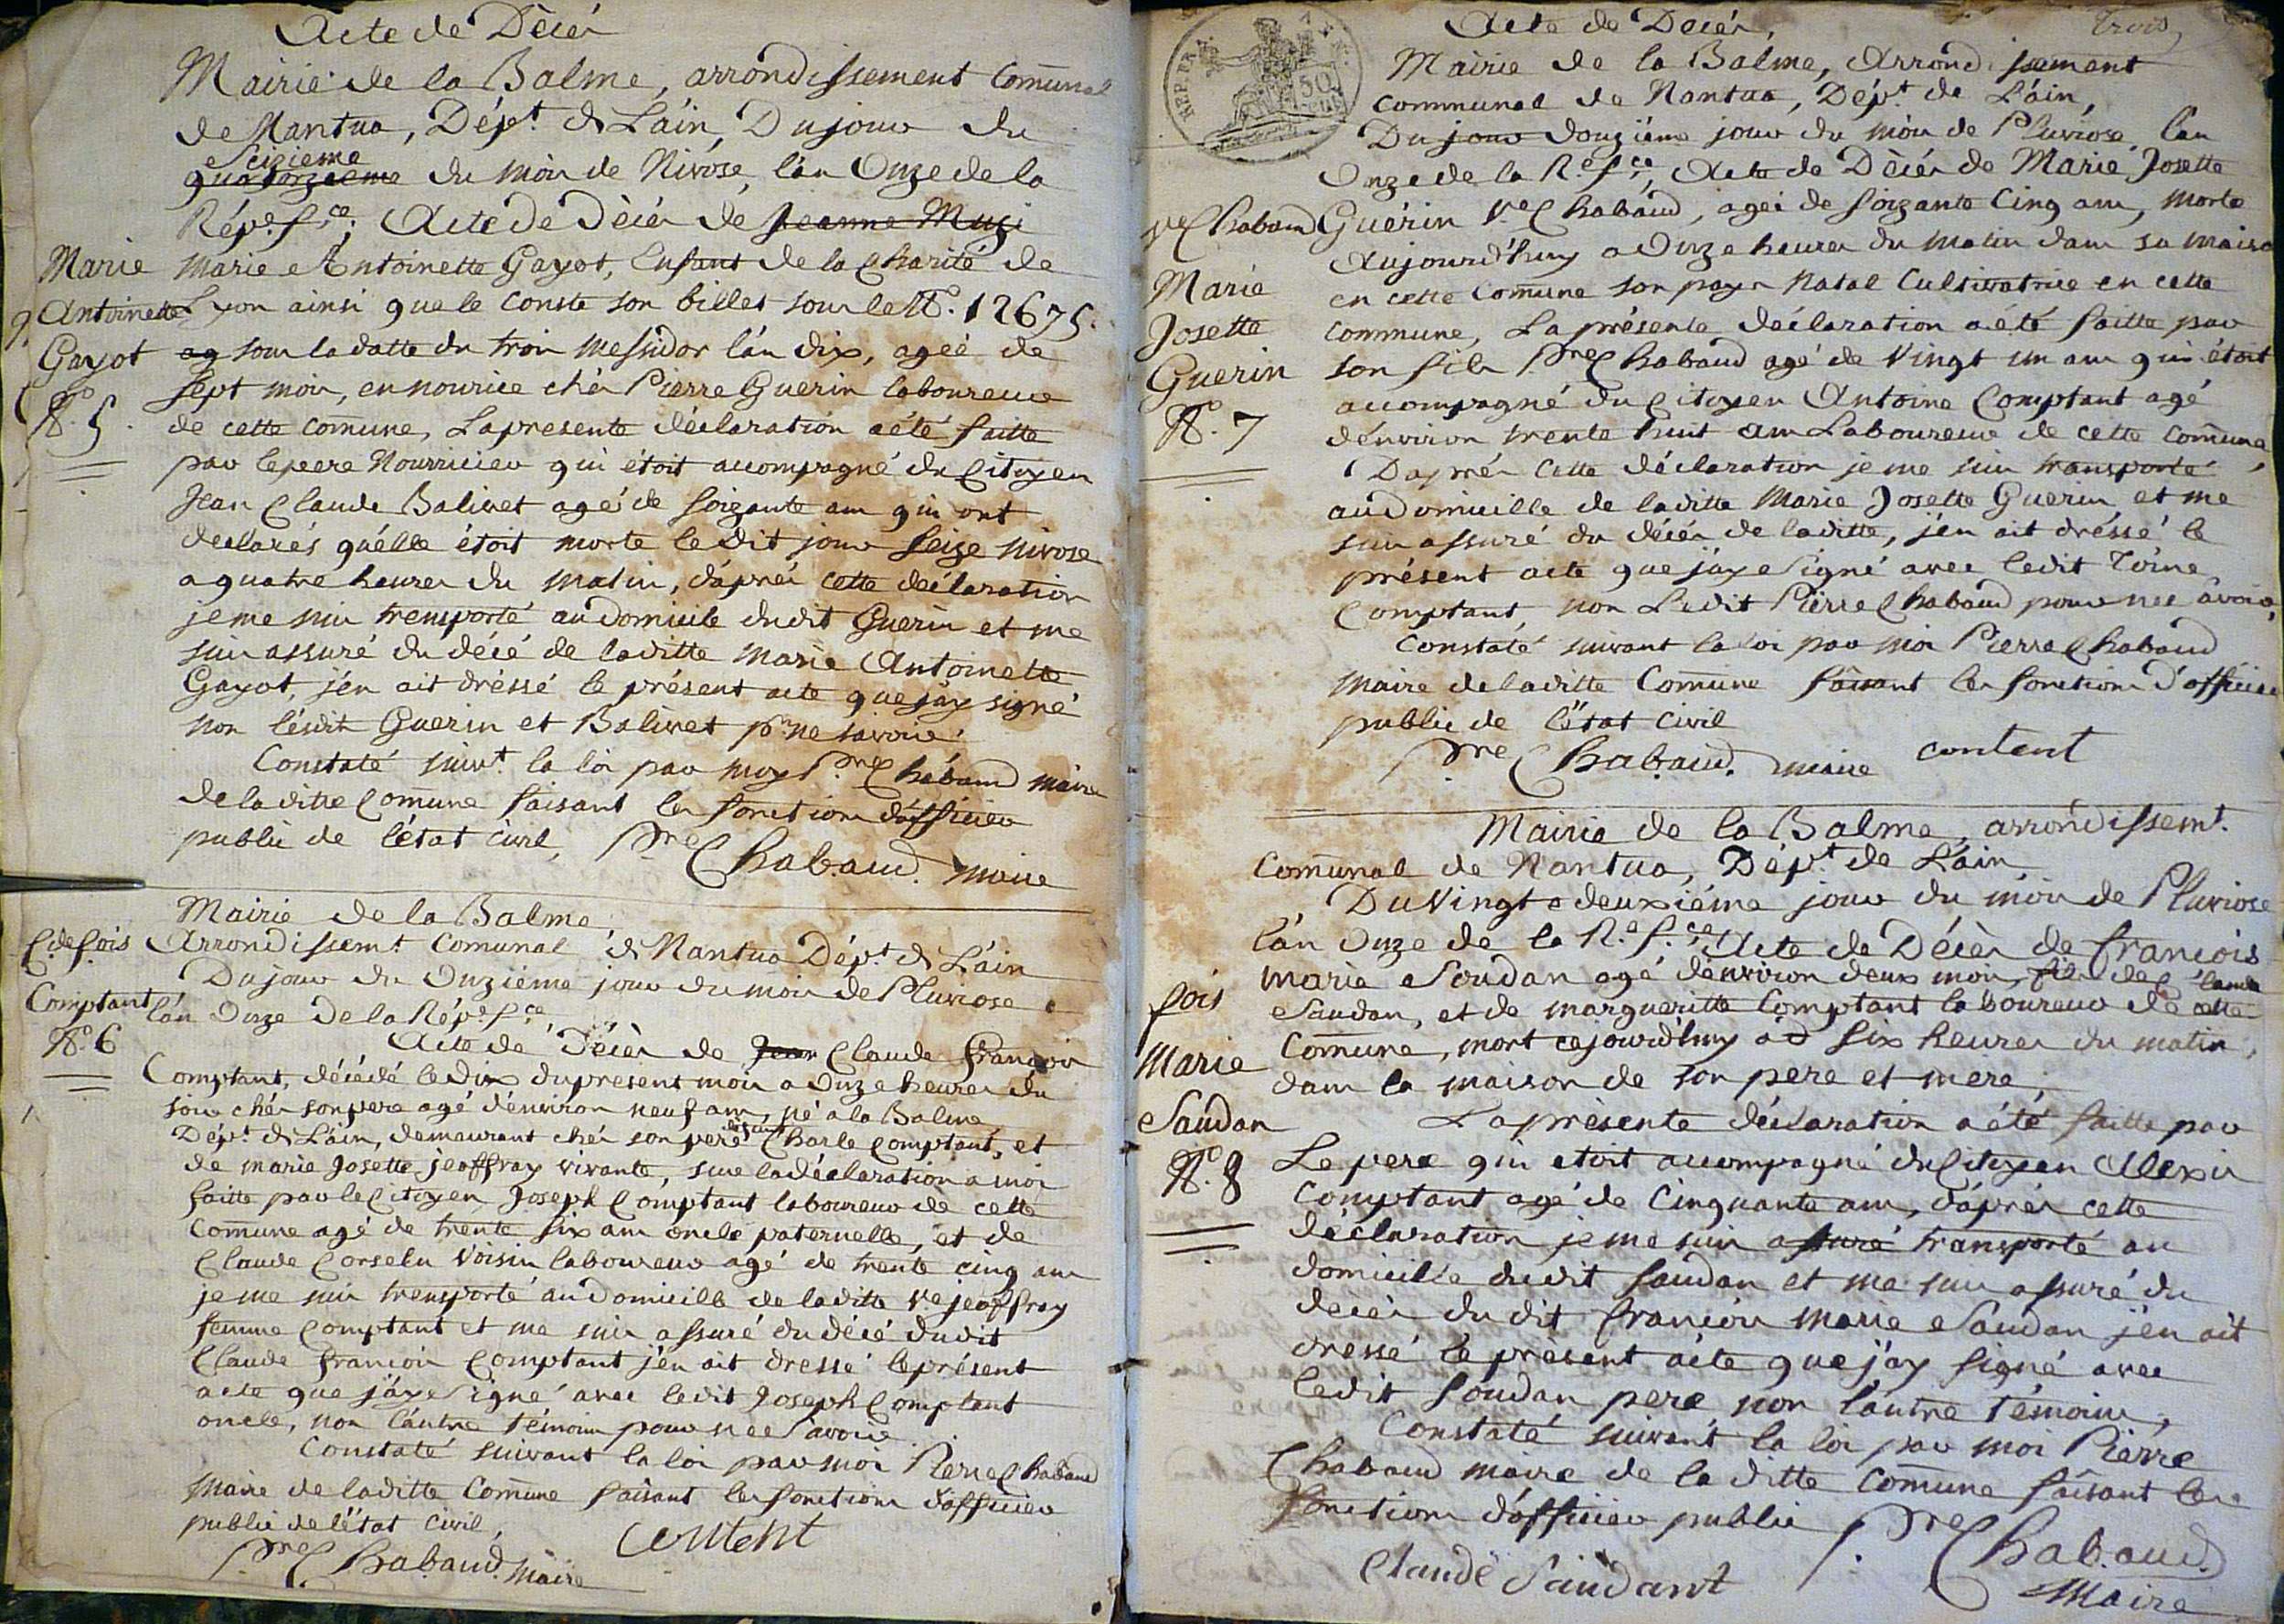 Acte de Décés
Mairie de la Balme, arrondissement Comunal
de Nantua, Dépt. de L'ain, Du jour du
Seizieme
quatorzieme du mois de Nivose, l'an Onze de la
Rép.e f.ce; Acte de Décés de Jeanne Muzi
Marie Antoinette Gayot, Enfant de la Charité de
Lyon ainsi que le Conste son billet sous le N.° 12675.
ag sous la datte du trois Messidor l'an dix, ageé de
sept mois, en nourice chés Pierre Guerin laboureur
de cette Comune, La presente déclaration a été faitte
par le pere Nourricier qui étoit accompagné du Citoyen
Jean Claude Balivet agé de soizante ans qui ont
declarés qu'elle étoit morte le dit jour seize nivose
a quatre heures du matin, d'aprés cette déclaration
je me suis transporté au domicile dudit Guerin et me
suis assuré du décé de laditte Marie Antoinette
Gayot, j'en ait dréssé le présent acte que j'ay signé
non lésdit Guerin et Balivet pr. ne savoir.
Constaté suivt. la loi par moy Pre Chabaud maire
de la ditte Comune faisant les fonctions d'officier
public de l'état civil, Pre Chabaud. maire
Marie
Antoinette
Gayot
N.° 5
Mairie de la Balme
Arrondissemt. Comunal de Nantua Dépt. de L'ain
Du jour du Onzième jour du mois de Pluviose
l'an Onze de la Rép.e f.ce
Acte de Décés de Jean Claude François
Comptant, décédé le dix du present mois a Onze heures du
soir chés son pere agé d'environ neuf ans, né a la Balme
Dépt. de L'ain, demeurant chés son pere Charle Comptant, et
de marie Josette jeoffray vivante, sur la déclaration a moi
faitte par le Citoyen Joseph Comptant laboureur de cette
Comune agé de trente six ans oncle paternelle, et de
Claude Corselu Voisin laboureur agé de trente cinq ans
je me suis transporté au domicille de laditte Ve jeoffray
femme Comptant et me suis assuré du décé dudit
Claude François Comptant j'en ait dressé le présent
acte que j'ay signé avec ledit Joseph Comptant
oncle, non l'autre témoins pour ne Savoir
Constaté suivant la loi par moi Pierre Chabaud
Maire de laditte Comune faisant les fonctions d'officier
public de l'état civil,
Contant
Pre Chabaud. Maire
C. de fois
Comptant
N.° 6
trois
Acte de Décés,
Mairie de la Balme, Arrondissement
Communal de Nantua, Dépt. de L'ain,
Du jour douzième jour du mois de Pluviose, l'an
Onze de la R.e f.ce, Acte de Décés de Marie Josette
Guérin Ve Chabaud, ageé de soizante Cinq ans, morte
Aujourd'huy a Onze heures du matin dans sa maison
en cette Comune son pays Natal Cultivatrice en cette
commune, La présente déclaration a été faitte par
son fils Pre Chabaud agé de Vingt un ans qui étoit
accompagné du Citoyen Antoine Comptant agé
d'environ trente huit ans Laboureur de cette Comune,
D'aprés cette déclaration je me suis transporté
au Domicille de laditte Marie Josette Guerin, et me
suis assuré du décés de laditte, j'en ait dréssé le
présent acte que j'ay signé avec ledit Toine
Comptant, non Ledit Pierre Chabaud pour ne savoir,
Constaté suivant la loi par moi Pierre Chabaud
Maire de laditte Comune faisant les fonctions d'officier
public de l'état civil
Pre Chabaud. maire content
Ve Chabaud
Marie
Josette
Guerin
N.° 7
Mairie de la Balme, arrondissemt.
Comunal de Nantua, Dépt. de L'ain
Du Vingt deuxiéme jour du mois de Pluviose
l'an Onze de la R.e f.ce, Acte de Décès de francois
marie Soudan agé d'environ deux mois, fils de Claude
Saudan, et de margueritte Comptant laboureur de cette
Comune, mort cejourd'huy a six heures du matin,
dans la maison de son pere et mere,
La présente déclaration a été faitte par
Le pere qui etoit accompagné du Citoyen Alexis
Comptant agé de Cinquante ans, d'aprés cette
déclaration je me suis assuré transporté au
domicille dudit Saudan et me suis assuré du
décés du dit François Marie Saudan j'en ait
dressé le présent acte que j'ay signé avec
ledit Soudan pere non l'autre témoins,
Constaté suivant la loi par moi Piérre
Chabaud maire de la ditte Comune faisant les
fonctions d'officier public Pre Chabaud.
Claude Saudant Maire
fois
Marie
Saudan
N.° 8